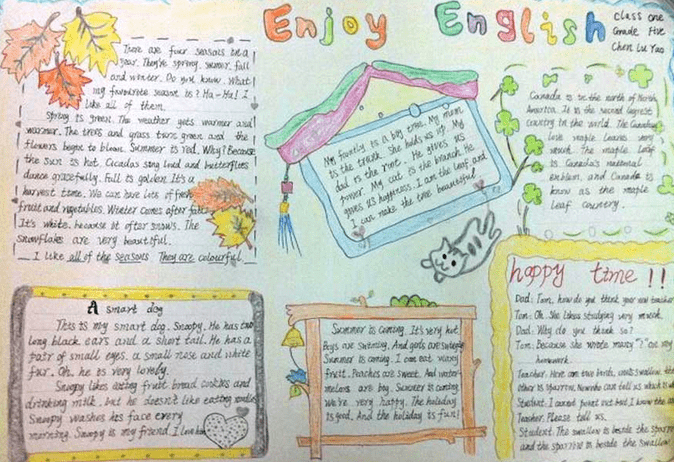 Enjoy English
Class one
Grade Five
Chen Lu Yao
There are four seasons in a
year. They're spring, summer, fall
and winter. Do you know What
my favourite season is? Ha-Ha! I
like all of them.
Spring is green. The weather gets warmer and
warmer. The trees and grass turns green and the
flowers begin to bloom. Summer is red. Why? Because
the sun is hot. Cicadas sing loud and butterflies
dance gracefully. Fall is golden. It's a
harvest time. We can have lots of fresh
fruit and vegetables. Winter comes after fall.
It's white. because it often snows. The
snowflakes are very beautiful.
I like all of the seasons They are colourful.
My family is a big tree. My mum
is the trunk. She holds us up. My
dad is the root. He gives us
power. My cat is the branch. He
gives us happiness. I am the leaf and
I can make the tree beautiful.
Canada is in the north of North
America. It is the second largest
country in the world. The Canadians
love maple leaves very
much. The maple leaf
is Canada's national
emblem, and Canada is
know as the maple
leaf country.
A smart dog
This is my smart dog. Snoopy. He has two
long black ears and a short tail. He has a
pair of small eyes. a small nose and white
fur. Oh. he is very lovely.
Snoopy likes eating fruit bread cookies and
drinking milk. but he doesn't like eating noodles
Snoopy washes his face every
morning. Snoopy is my friend. I love him
Summer is coming. It's very hot.
Boys are swimming. And girls are
Summer is coming. I can eat many
fruit. Peaches are sweet. And water-
melons are big. Summer is coming.
We're very happy. The holiday
is good. And the holiday is fun!
happy time!!
Dad: Tom, how do you think your new teacher
Tom: Oh. She likes studying very much.
Dad: Why do you think so?
Tom: Because she wrote many "?" on my
homework.
Teacher: Here are two birds, one's swallow. the
other is sparrow. Now who can tell us which is
Student: I cannot point out but I know the
Teacher: Please tell us.
Student: The swallow is beside the sparrow
and the sparrow is beside the swallow